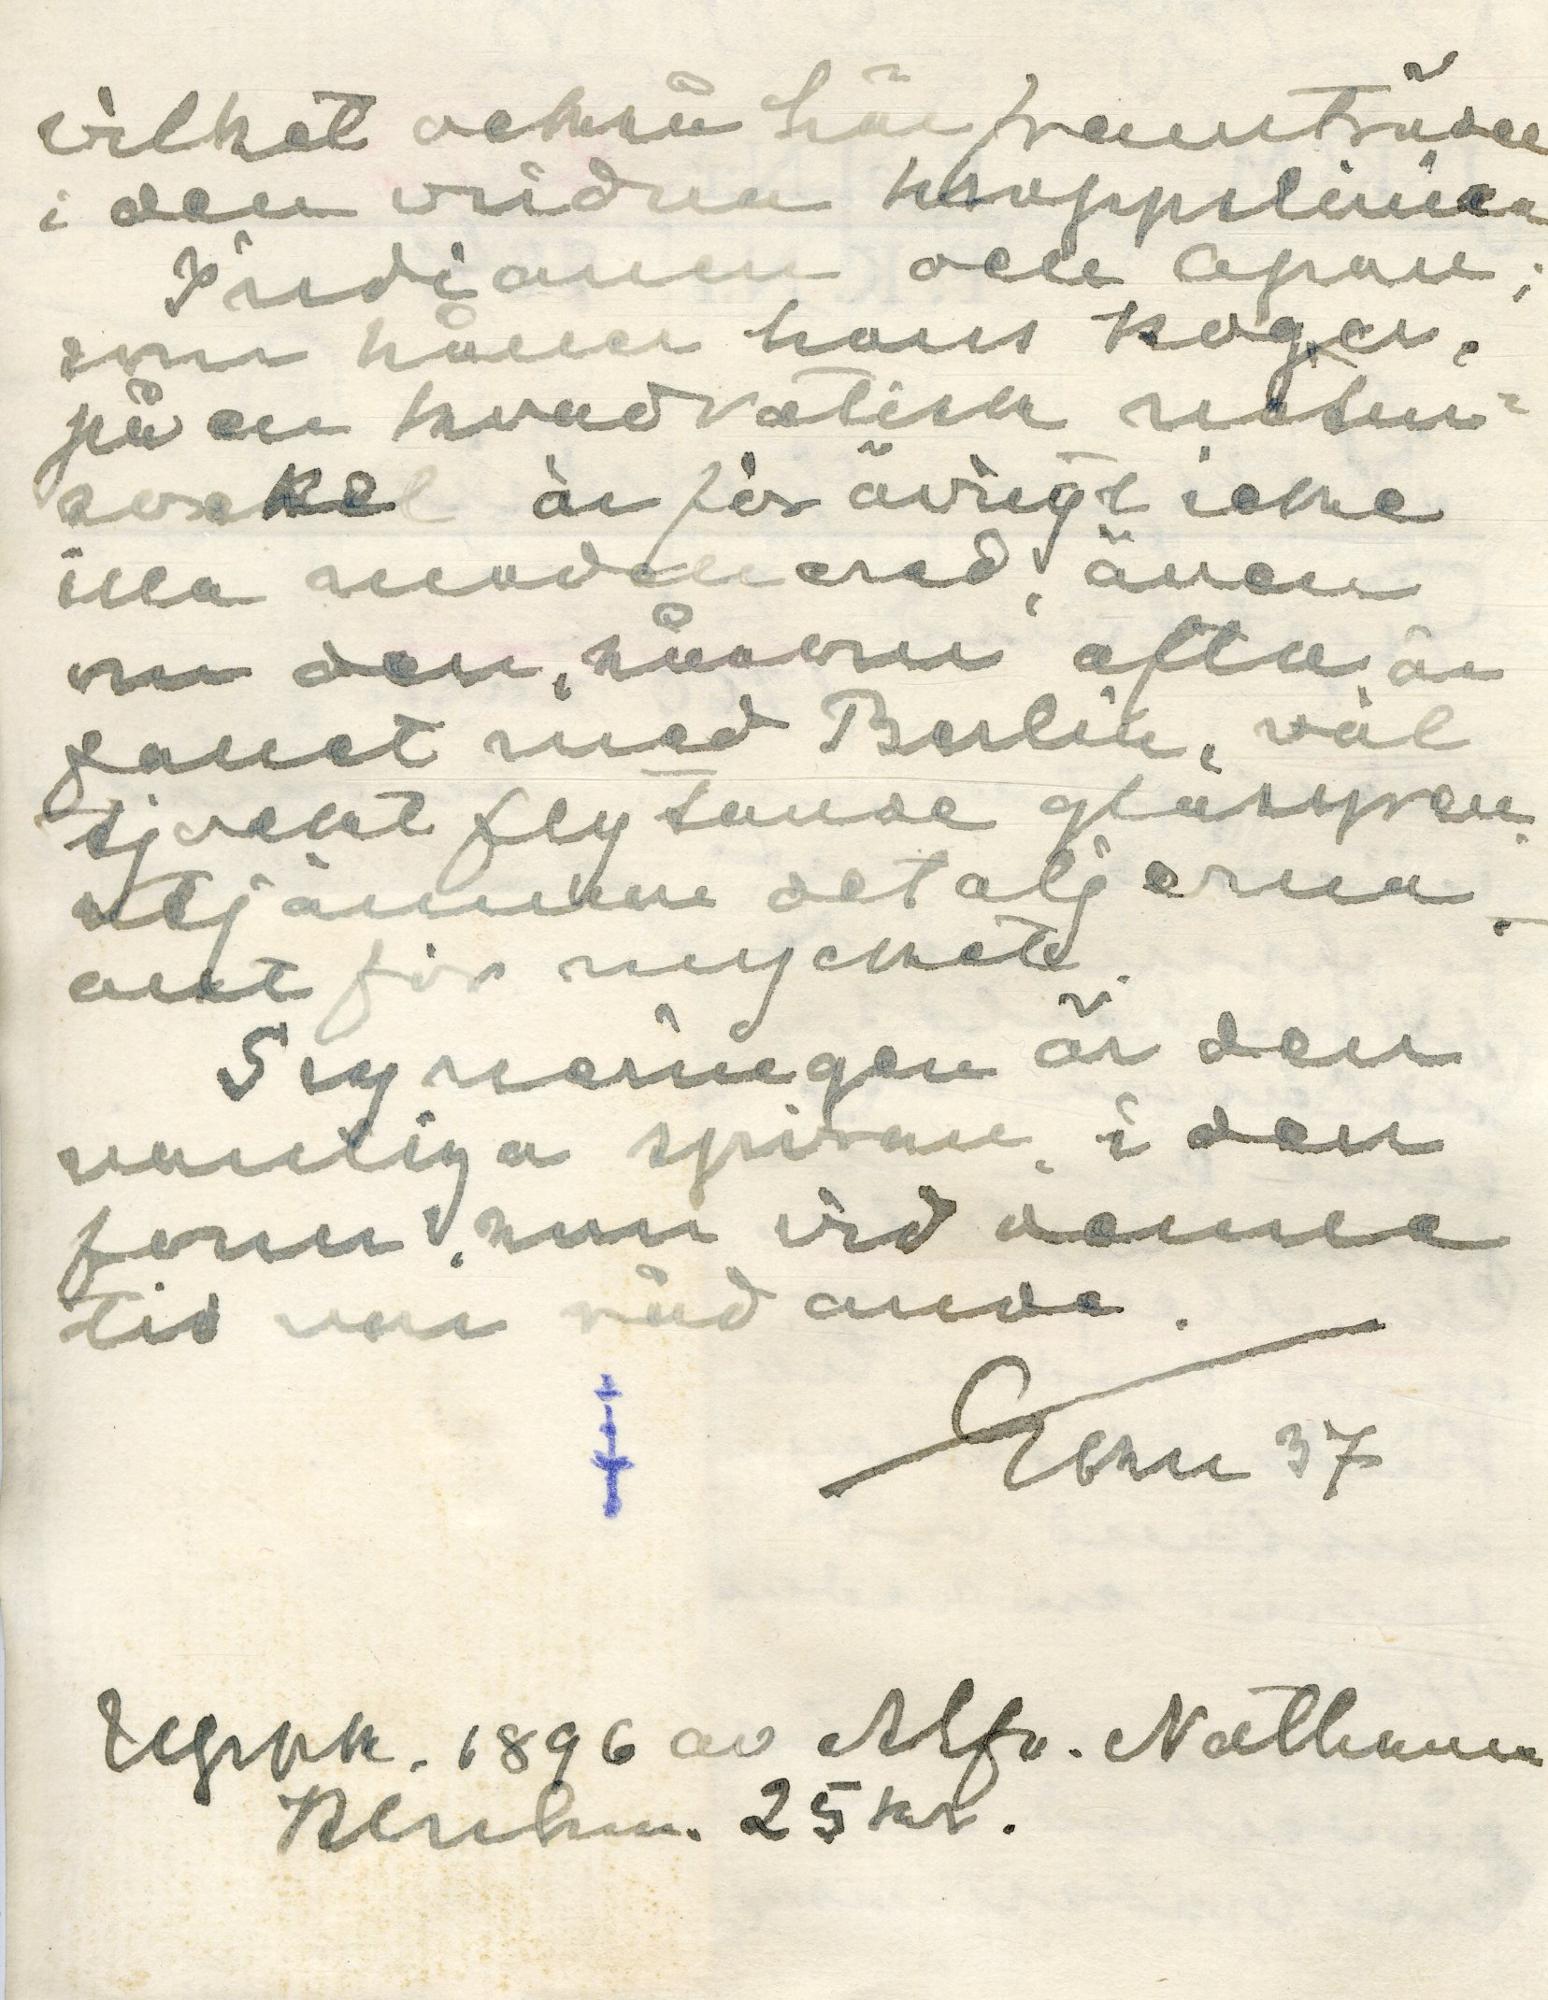 vilket också här framträder
i den vridna kroppslinien
Indianen och apan,
som håller hans koger,
på en kvadratisk natur-
sockel är för övrigt icke
illa modellerad, även
om den, såsom ofta är
fallet med Berlin, väl
tjockt flytande glasyren
utjämnar detaljerna
allt för mycket.
Signeringen är den
vanliga spiran, i den
form, som vid denna
tid var rådande.
37
Uppk. 1896 av Alfr. Nathan
25 kr.